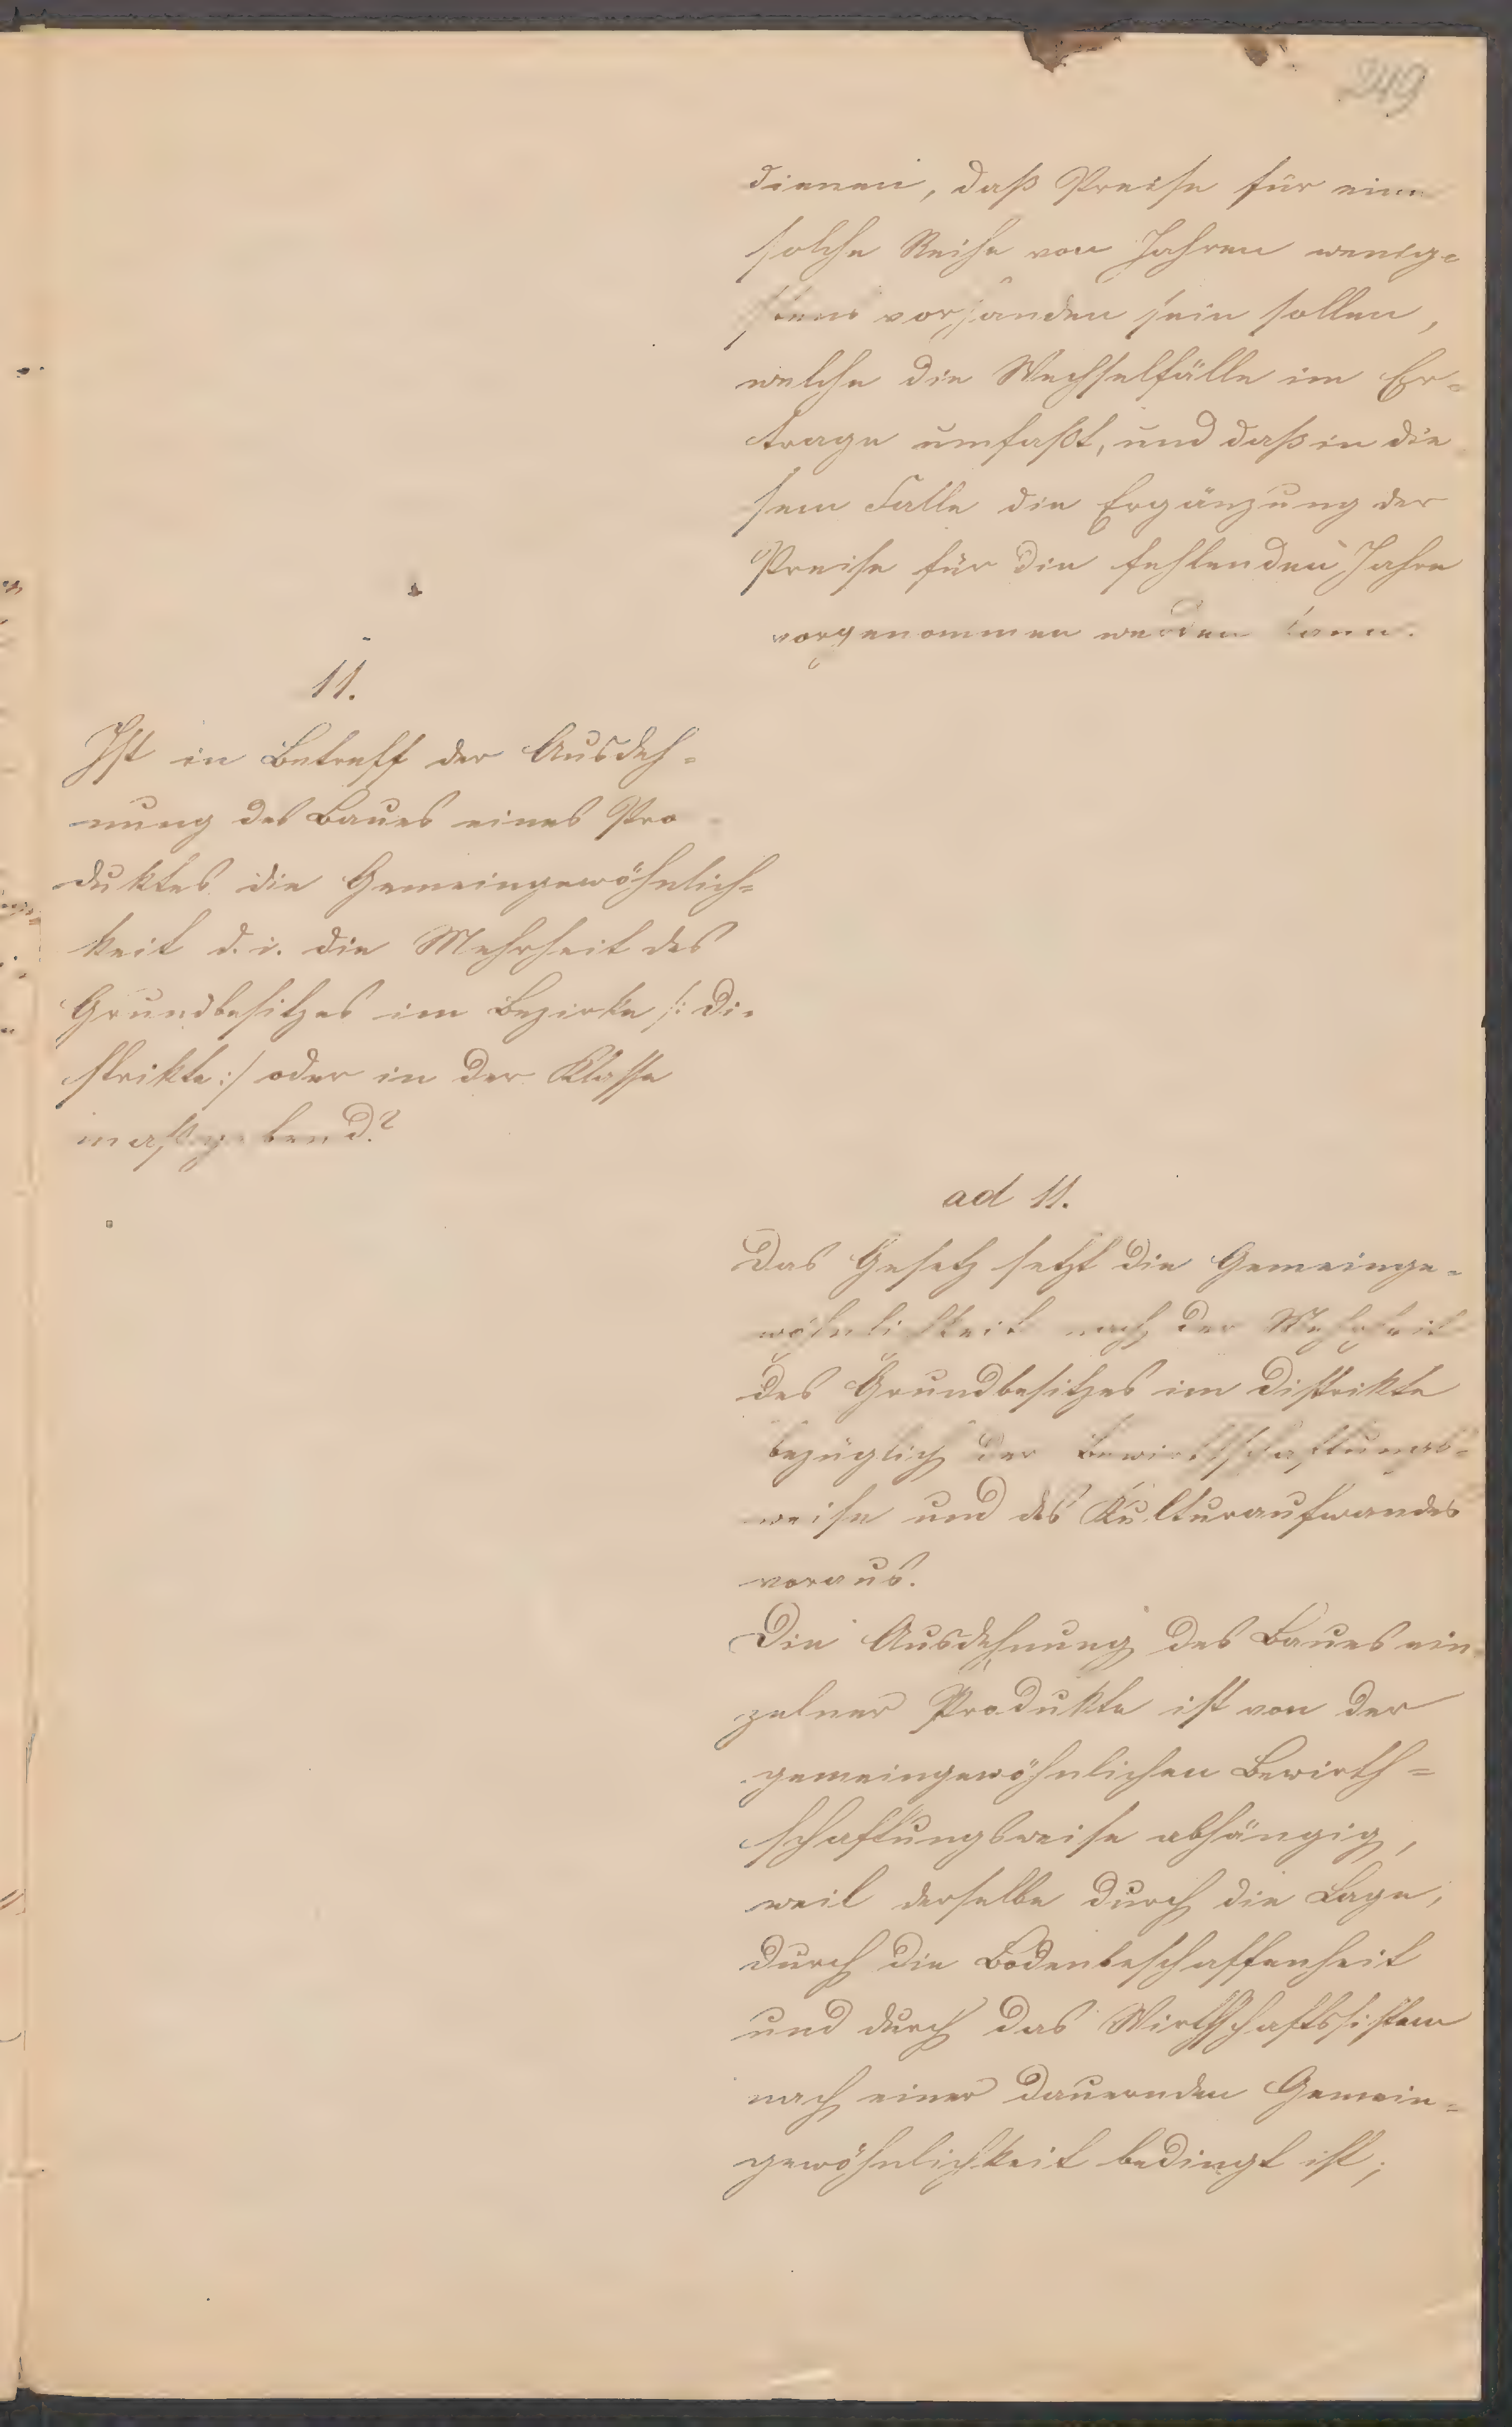 249
dienen, daß Preise für eine
solche Reihe von Jahren wenig-
stens vorhanden sein sollen,
welche die Wechselfälle im Er-
trage umfaßt, und daß in die
sem Falle die Ergänzung der
Preise für die fehlenden Jahre
vorgenommen werden kann.
11.
Ist in Betreff der Ausdeh-
nung des Baues eines Pro
duktes die Gemeingewöhnlich-
keit d. i. die Mehrheit des
Grundbesitzes im Bezirke /: Di-
strikte :/ oder in der Klasse
maßgebend?
ad 11.
Das Gesetz setzt die Gemeinge-
wöhnlichkeit nach der Mehrheit
des Grundbesitzes im Distrikte
bezüglich der Bewirthschaftungs-
weise und des Kulturaufwandes
voraus.
Die Ausdehnung des Baues ein-
zelner Produkte ist von der
gemeingewöhnlichen Bewirth-
schaftungsweise abhängig,
weil derselbe durch die Lage,
durch die Bodenbeschaffenheit
und durch das Wirthschaftssistem
nach einer dauernden Gemein-
gewöhnlichkeit bedingt ist;